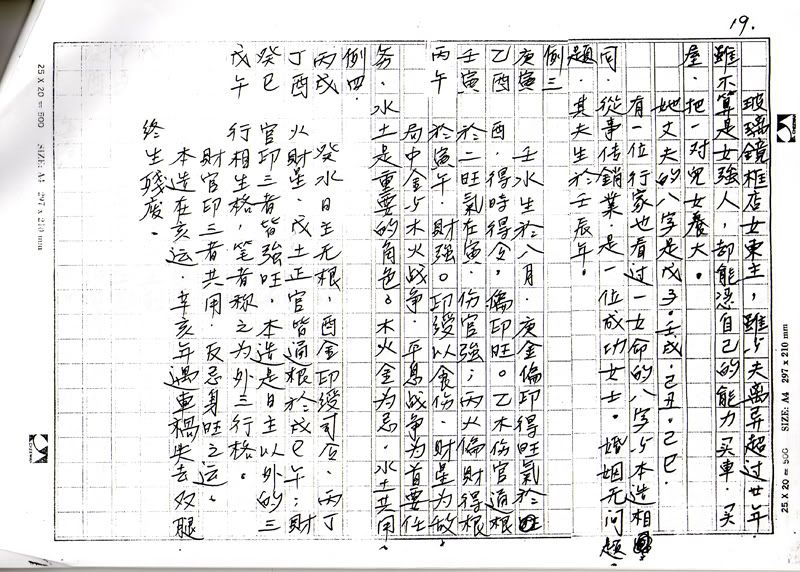 19.
玻璃鏡框店女東主，雖与夫离异超过廿年．
雖不算是女強人，却能凴自己的能力买車．买
屋．把一对兒女養大。
她丈夫的八字是戊子。壬戌．己丑．己巳．
有一位行家也看过一女命的八字与本造相
同．從事传銷業．是一位成功女士。婚姻无问题．
題．其夫生於壬辰年。
例三
庚寅　壬水生於八月．庚金偏印得旺氣於
乙酉　酉．得時得令．偏印旺。乙木伤官通根
壬寅　於二旺氣在寅．伤官強；丙火偏財得根
丙午　於寅午．財強。印绶以食伤．財星为敌．
局中金与木火战争．平息战争为首要任
务．水土是重要的角色。木火金为忌．水土共用．
例四．
丙戌　癸水日主无根．酉金印绶司令．丙丁
丁酉　火財星．戊土正官皆通根於戌巳午；財
癸巳　官印三者皆強旺．本造是日主以外的三
戊午　行相生格，笔者称之为外三行格。
財官印三者共用．反忌身旺之运。
本造在亥运．辛亥年遇車禍失去双腿
終生殘废．
25 X 20 = 500 SIZE: A4 297 x 210 mm
25 X 20 = 500 SIZE: A4 297 x 210 mm